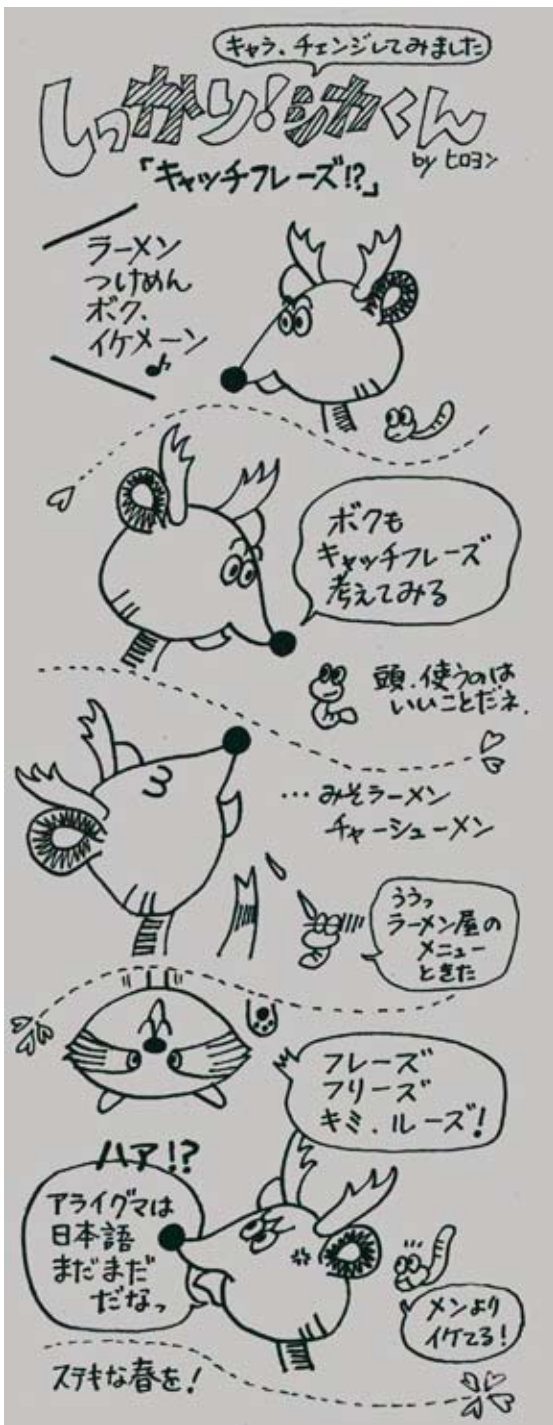 キャラ、チェンジしてみました
しっかり!ジカくん
by ヒロヨン
「キャッチフレーズ!?」
ラーメン
つけめん
ボク、
イケメーン
♪
ボクも
キャッチフレーズ
考えてみる
頭、使うのは
いいことだネ.
…みそラーメン
チャーシューメン
ううっ
ラーメン屋の
メニュー
ときた
フレーズ
フリーズ
キミ、ルーズ!
ハア!?
アライグマは
日本語
まだまだ
だなっ
メンより
イケてる!
ステキな春を!